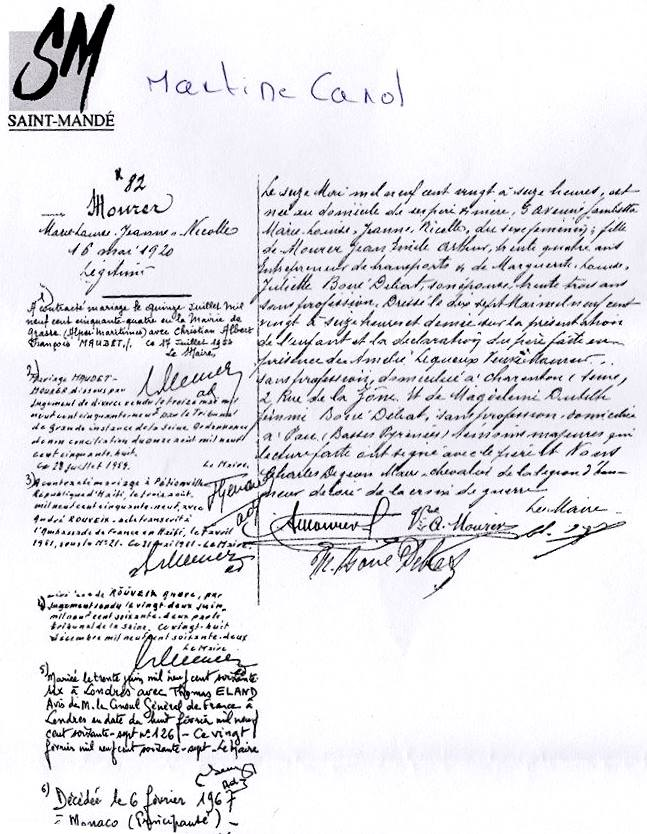 SM
SAINT-MANDÉ
Martine Carol
N° 82
Mourer
Marie-Louise-Jeanne-Nicolle
16 mai 1920
Légitime
1)
A contracté mariage le quinze Juillet mil
neuf cent cinquante-quatre en la Mairie de
Grasse (Alpes-Maritimes) avec Christian Albert
François MAUDET./. Ce 17 Juillet 1954
Le Maire,
2)
Mariage MAUDET-
MOURER dissous par
jugement de divorce rendu le treize mai mil
neuf cent cinquante-neuf par le Tribunal
de Grande instance de la Seine. Ordonnance
de non conciliation du onze août mil neuf
cent cinquante-huit.
Ce 29 Juillet 1959.
Le Maire,
3) A contracté mariage à Pétionville
République d'Haïti, le trois août
mil neuf cent cinquante-neuf, avec
André ROUVEIX - acte transcrit à
l'Ambassade de France en Haïti, le 7 avril
1961, sous le N° 21. - Ce 21 Mai 1961 - Le Maire,
4)
de ROUVEIX André, par
jugement rendu le vingt-deux juin
mil neuf cent soixante-deux par le
tribunal de la Seine. Ce vingt-huit
décembre mil neuf cent soixante-deux
Le Maire
5)
Mariée le trente juin mil neuf cent soixante
six à Londres avec Thomas ELAND
Avis de M. le Consul Général de France à
Londres en date du huit février mil neuf
cent soixante-sept n° 126/- Ce vingt
février mil neuf cent soixante-sept - Le Maire
6)
Décédée le 6 février 1967
à Monaco (Principauté) -
Le seize Mai mil neuf cent vingt à seize heures, est
née au domicile de ses père & mère, 5 avenue Gambetta
Marie-Louise, Jeanne, Nicolle, du sexe féminin; fille
de Mourer Jean Emile Arthur, trente quatre ans
entrepreneur de transports & de Marguerite Louise,
Juliette Boué Debat, son épouse, trente trois ans
sans profession, Dressé le dix sept Mai mil neuf cent
vingt à seize heures et demie sur la présentation
de l'enfant et la déclaration du père faite en
présence de Amélie Lequeux Veuve Maurer,
sans profession, domiciliée à Charenton (Seine,
2 Rue de la Zône. et de Magdeleine
Boué Debat, sans profession, domiciliée
à Pau, (Basses Pyrénées) témoins majeures qui
lecture faite ont signé avec le père et Nous
Charles Digeon Maire, chevalier de la légion d'hon-
neur décoré de la croix de guerre.
Le Maire
AMourer
Vve A. Mourer
M. Boué Debat